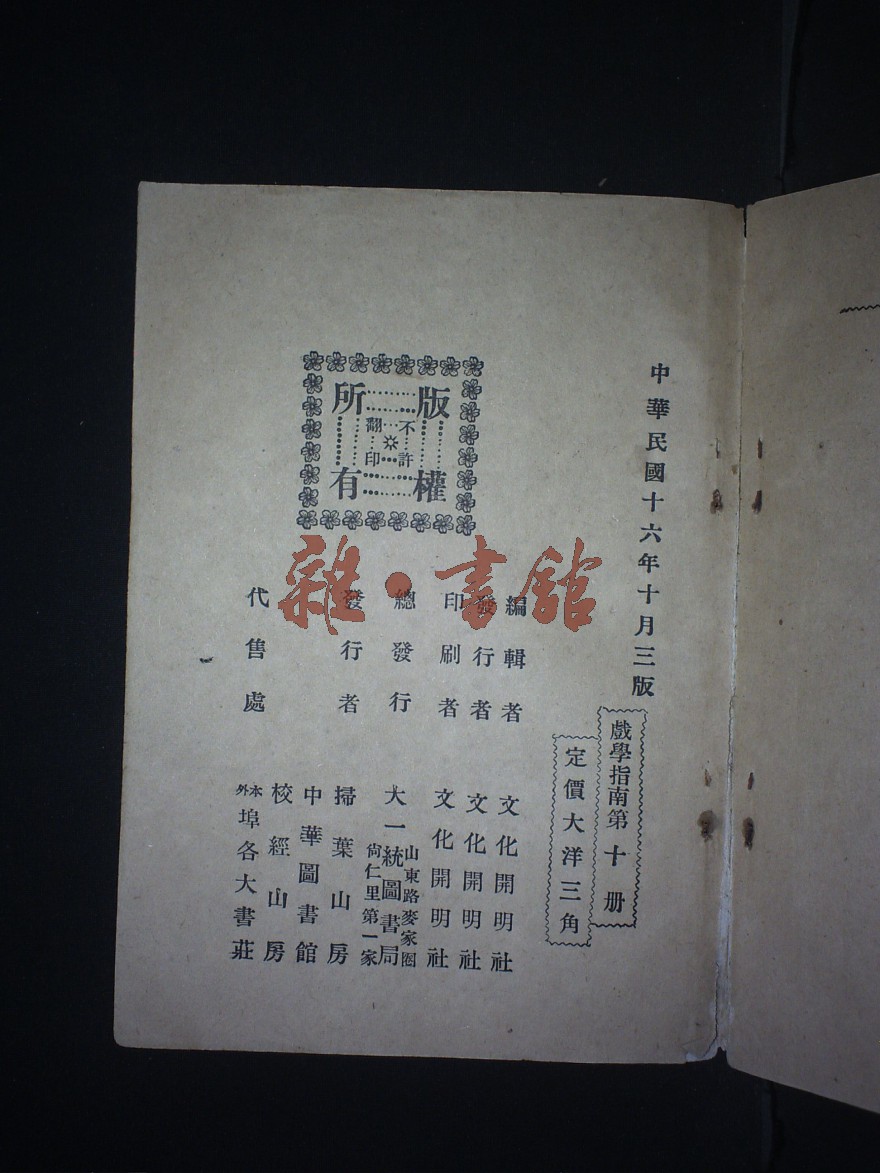 中華民國十六年十月三版
戲學指南第十册
定價大洋三角
編輯者 文化開明社
發行者 文化開明社
印刷者 文化開明社
總發行 大一統圖書局 山東路麥家圈尙仁里第一家
發行者 掃葉山房
中華圖書館
校經山房
代售處 本外埠各大書莊
版權所有
不許翻印
雜·書館